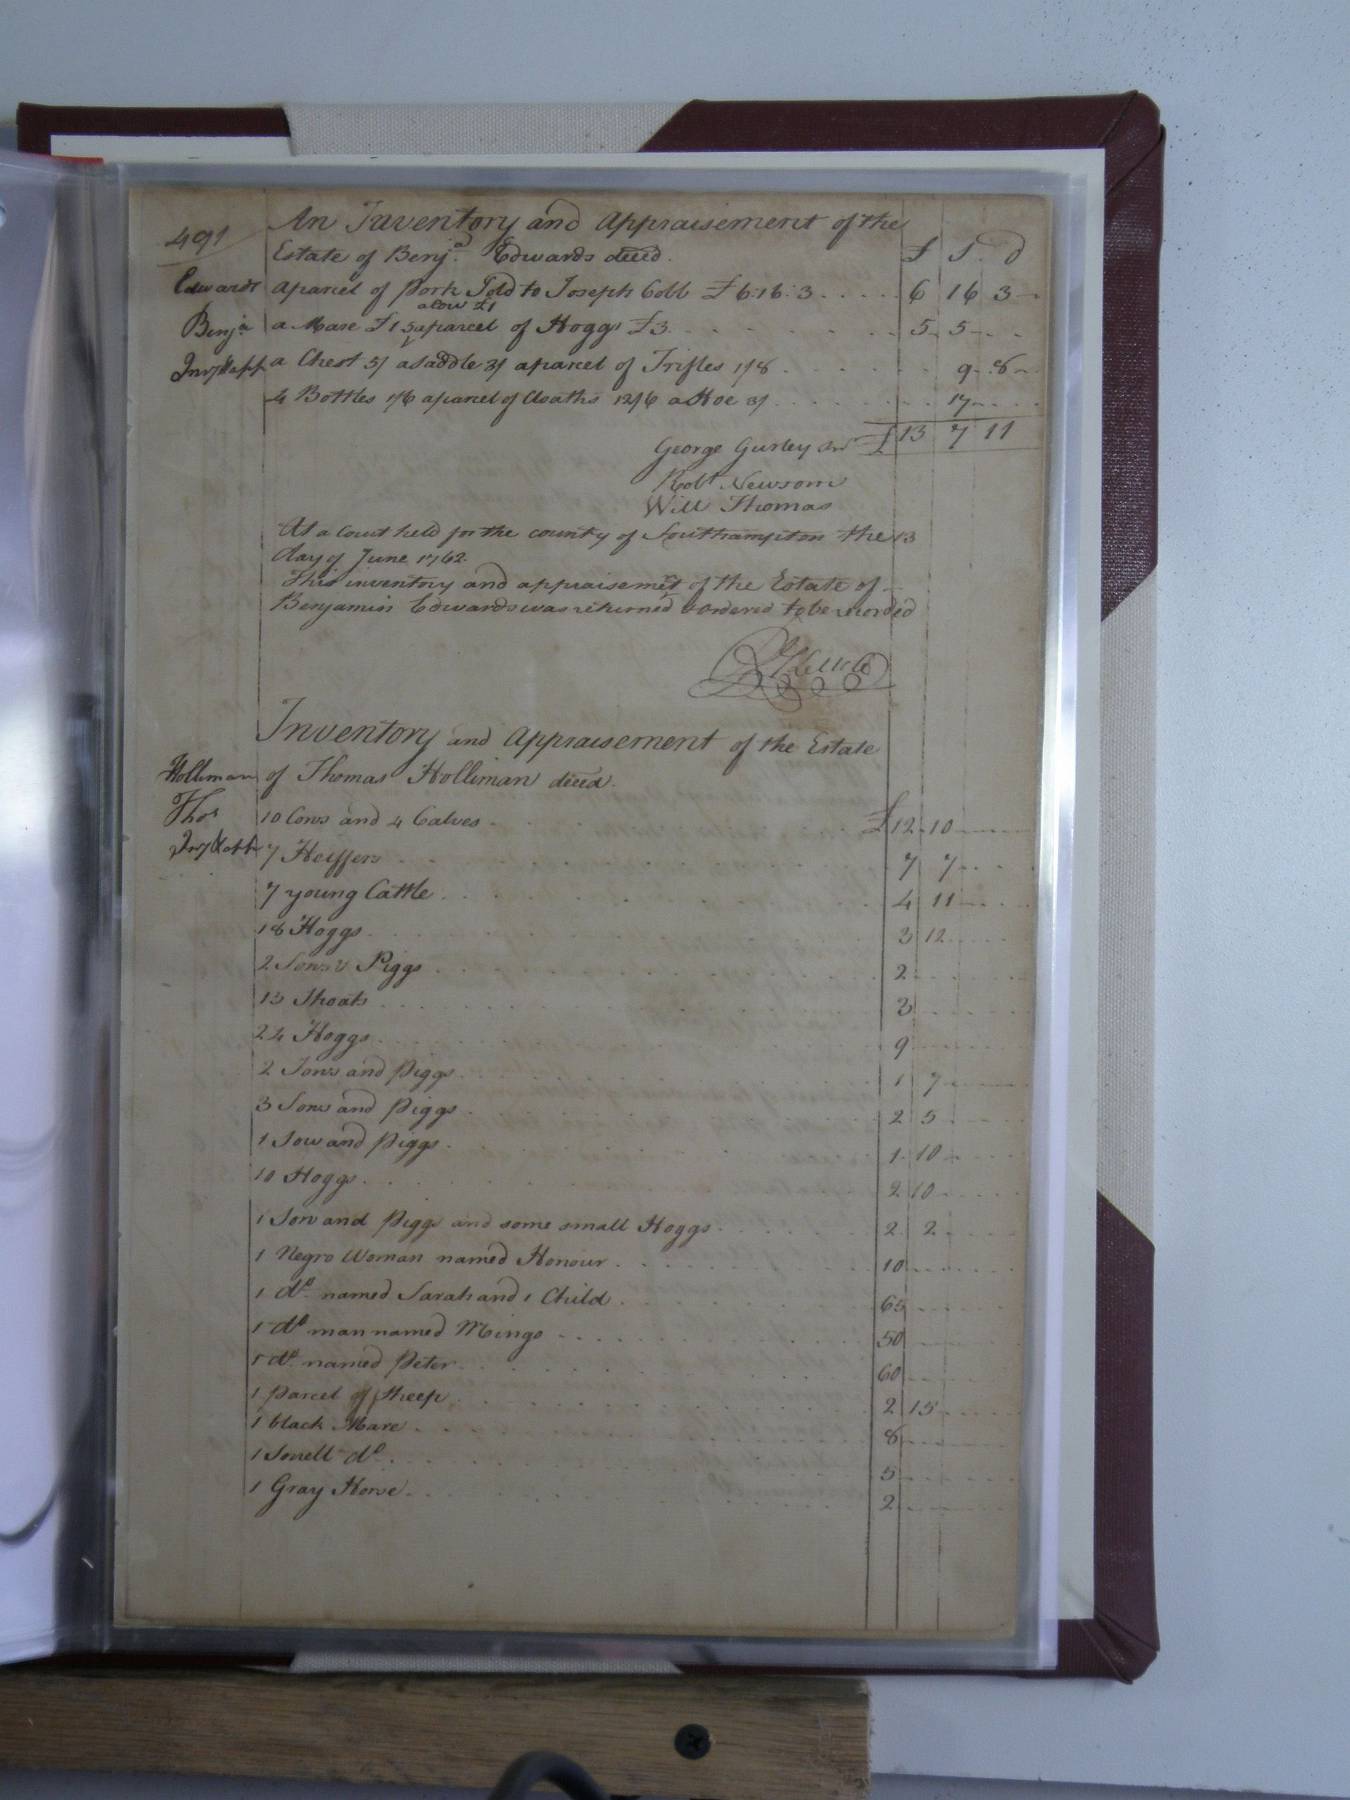 491
An Inventory and Appraisement of the
Estate of Benja. Edwards deced. £ S d
Edwards a parcel of Pork Sold to Joseph Cobb £6:16:3 6 16 3
a Cow £1
Benja a Mare £1 5 a parcel of Hoggs £3 5 5
Invy & app a Chest 5/ a Saddle 3/ a parcel of Trifles 1/8 9 8
4 Bottles 1/6 a parcel of Cloaths 12/6 a Hoe 3/ 17
George Gurley Snr £ 13 7 11
Robt Newsom
Will Thomas
At a Court held for the county of Southampton the 13
day of June 1762.
This inventory and appraisemet of the Estate of
Benjamin Edwards was returned & ordered to be recorded
Inventory and Appraisement of the Estate
Holliman of Thomas Holliman deced.
Thos 10 Cows and 4 Calves £12 10
Invy & app 7 Heiffers 7 7
7 young Cattle 4 11
18 Hoggs 3 12
2 Sows & Piggs 2
13 Shoats 3
24 Hoggs 9
2 Sows and Piggs 1 7
3 Sows and Piggs 2 5
1 Sow and Piggs 1 10
10 Hoggs 2 10
1 Sow and Piggs and some small Hoggs 2 2
1 Negro Woman named Honour 10
1 do. named Sarah and 1 Child 65
1 do man named Mingo 50
1 do. named Peter 60
1 parcel of Sheep 2 15
1 black Mare 8
1 Sorrell do. 5
1 Gray Horse 2